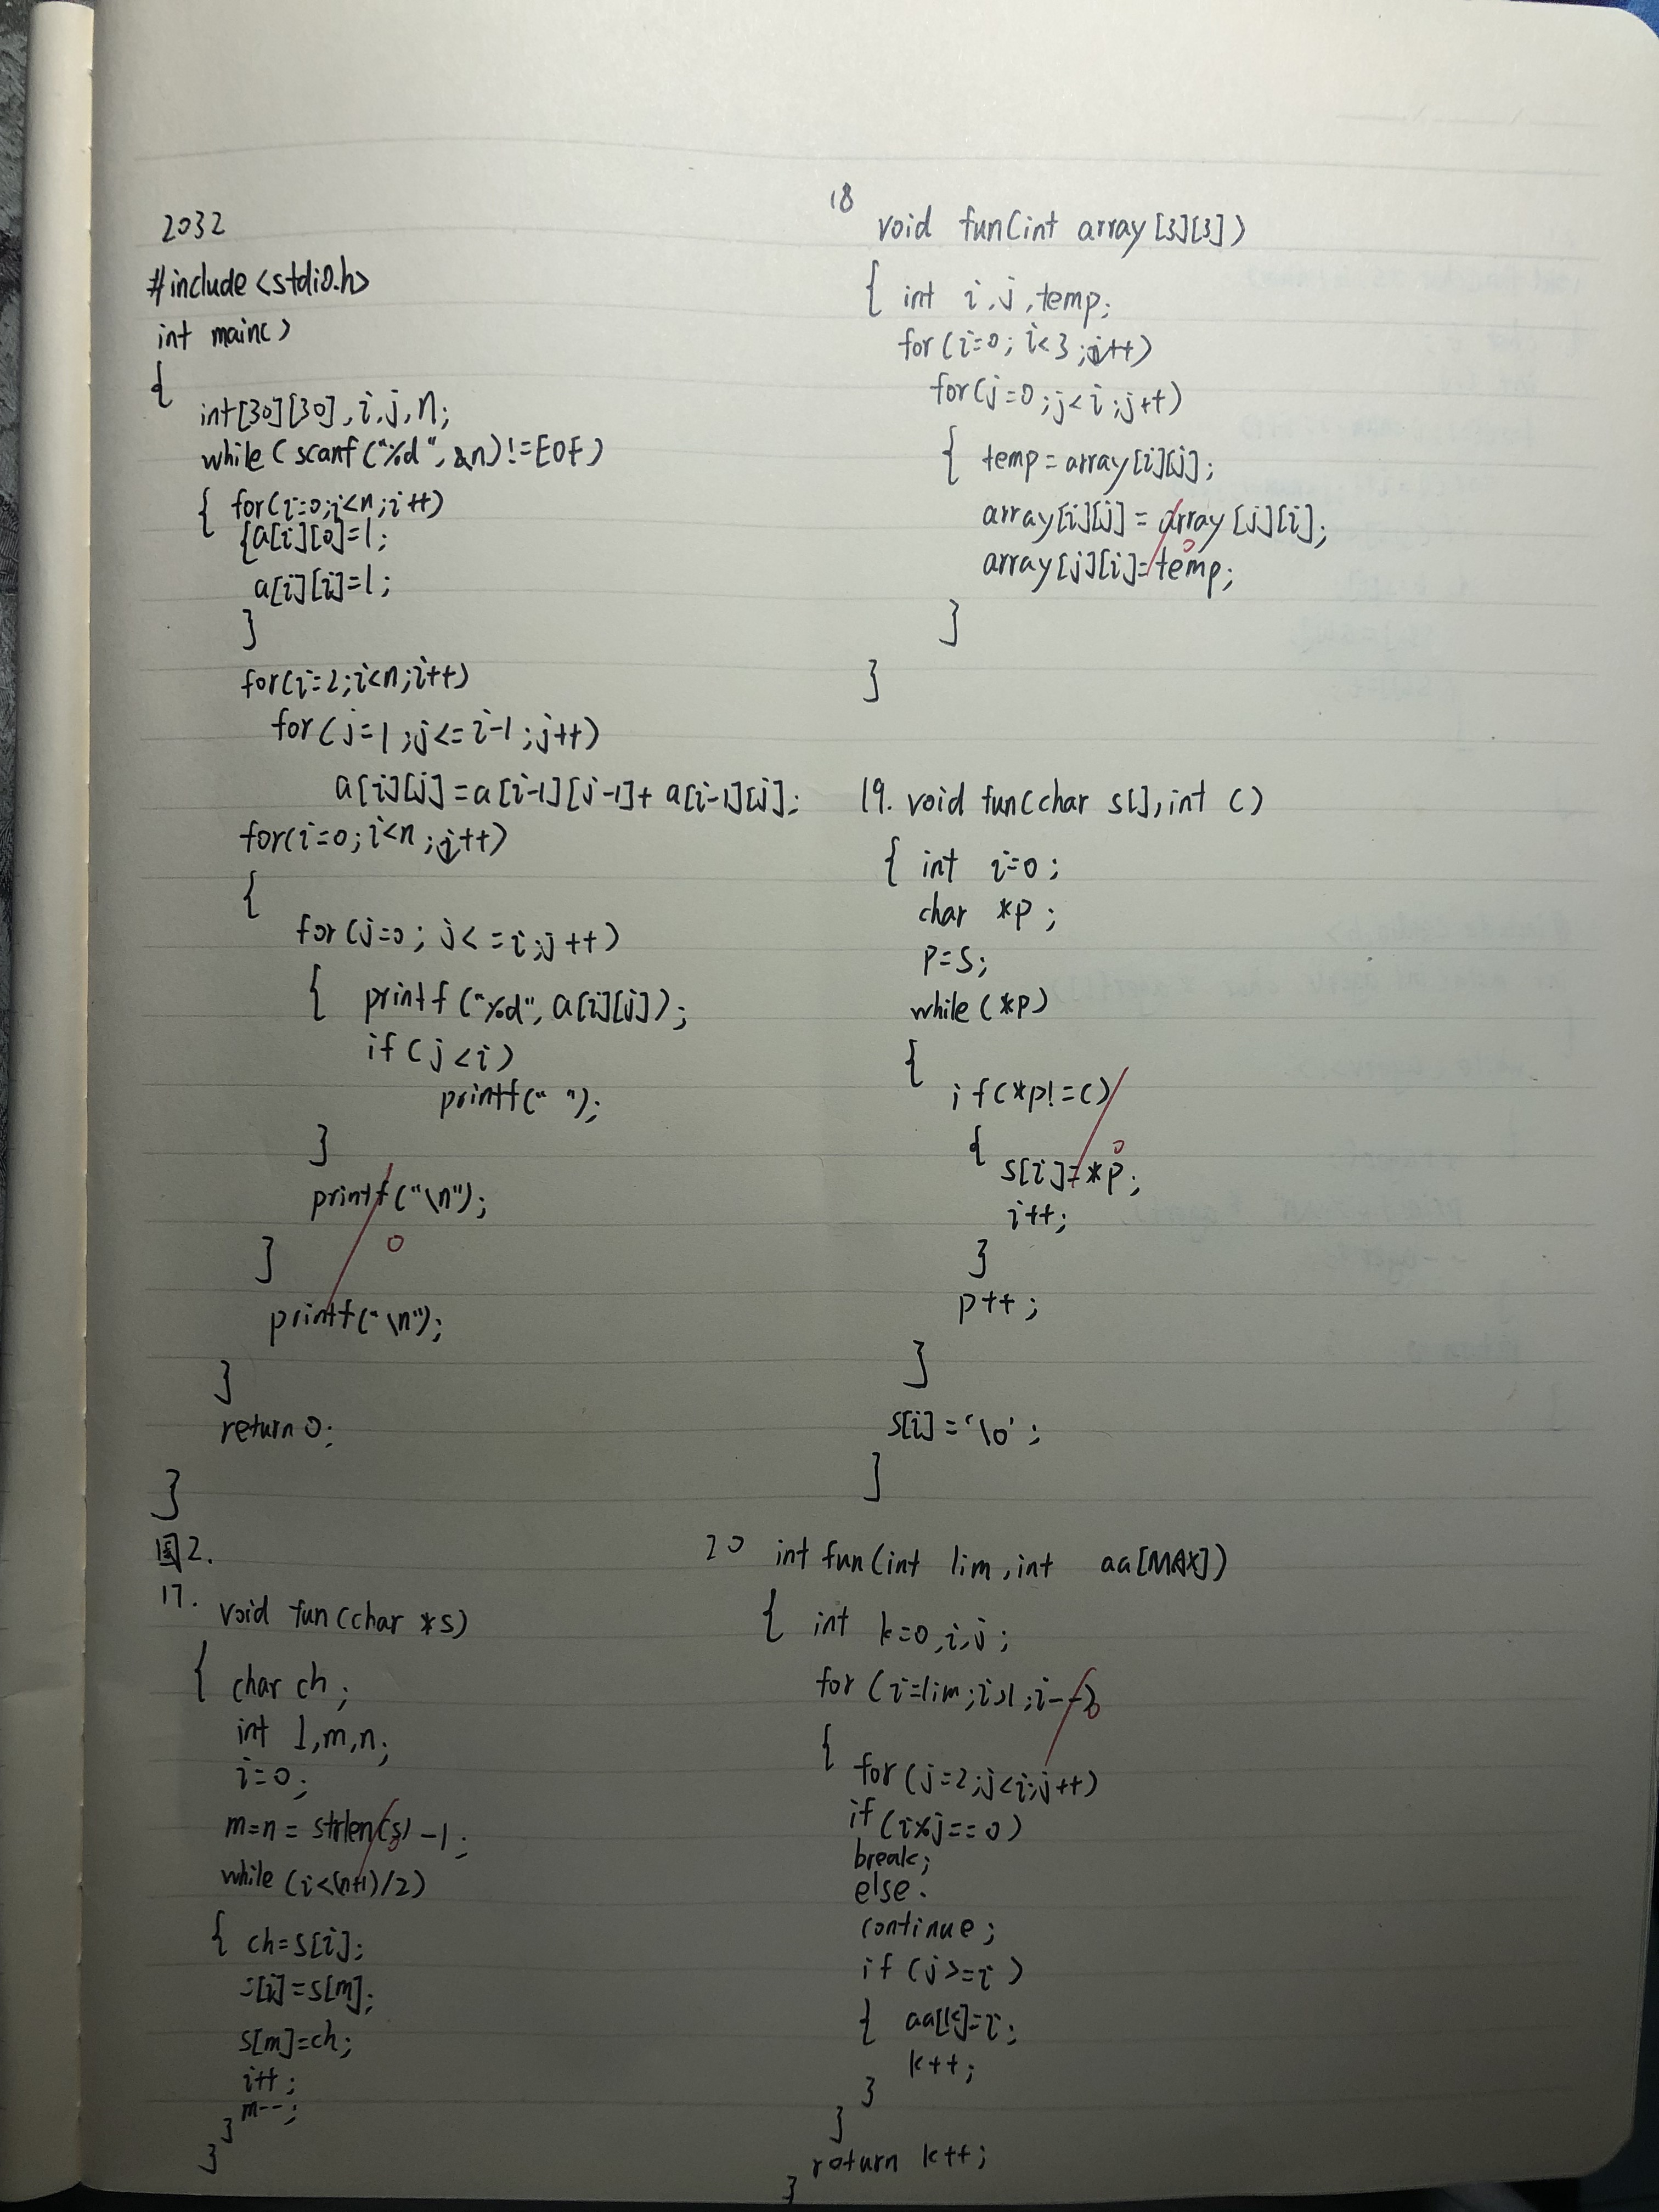 2032
#include<stdio.h>
int main()
{
int[30][30],i,j,n;
while(scanf("%d",&n)!=EOF)
{ for(i=0;i<n;i++)
{a[i][0]=1;
a[i][i]=1;
}
for(i=2;i<n;i++)
for(j=1;j<=i-1;j++)
a[i][j]=a[i-1][j-1]+a[i-1][j];
for(i=0;i<n;i++)
{
for(j=0; j<=i;j++)
{ printf("%d",a[i][j]);
if(j<i)
printf(" ");
}
printf("\n");
}
printf("\n");
}
return 0;
}
图2.
17. void fun(char *s)
{ char ch;
int 1,m,n;
i=0;
m=n=strlen(s)-1;
while(i<(n+1)/2)
{ ch=s[i];
s[i]=s[m];
s[m]=ch;
i++;
m--;
}
}
18 void fun(int array[3][3])
{ int i,j,temp;
for(i=0; i<3;i++)
for(j=0;j<i;j++)
{ temp=array[i][j];
array[i][j]=array[j][i];
array[j][i]=temp;
}
}
19. void fun(char s[],int c)
{ int i=0;
char *p;
p=s;
while(*p)
{
if(*p!=c)
{
s[i]=*p;
i++;
}
p++;
}
s[i]='\0';
}
20 int fun(int lim,int aa[MAX])
{ int k=0,i,j;
for(i=lim;i>1;i--)
{
for(j=2;j<i;j++)
if(i%j==0)
break;
else.
continue;
if(j>=i)
{ aa[k]=i;
k++;
}
}
return k++;
}